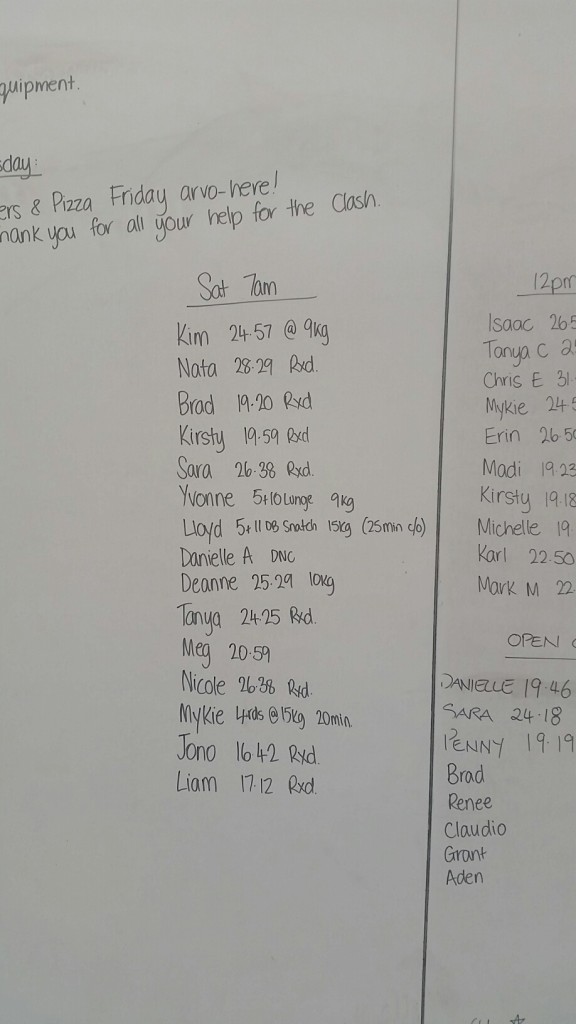 quipment.
sday:
ers & Pizza Friday arvo-here!
hank you for all your help for the Clash.
Sat 7am
Kim 24.57 @ 9kg
Nata 28.29 Rxd.
Brad 19.20 Rxd
Kirsty 19.59 Rxd
Sara 26.38 Rxd.
Yvonne 5+10 Lunge 9kg
Lloyd 5+11 DB Snatch 15kg (25min c/o)
Danielle A DNC
Deanne 25.29 10kg
Tanya 24.25 Rxd.
Meg 20.59
Nicole 26.38 Rxd.
Mykie 4rds @ 15kg 20min.
Jono 16.42 Rxd.
Liam 17.12 Rxd.
12pm
Isaac 265
Tanya C 2
Chris E 31.
Mykie 24.5
Erin 26.50
Madi 19.23
Kirsty 19.18
Michelle 19
Karl 22.50
Mark M 22
OPEN
DANIELLE 19.46
SARA 24.18
PENNY 19.19
Brad
Renee
Claudio
Grant
Aden